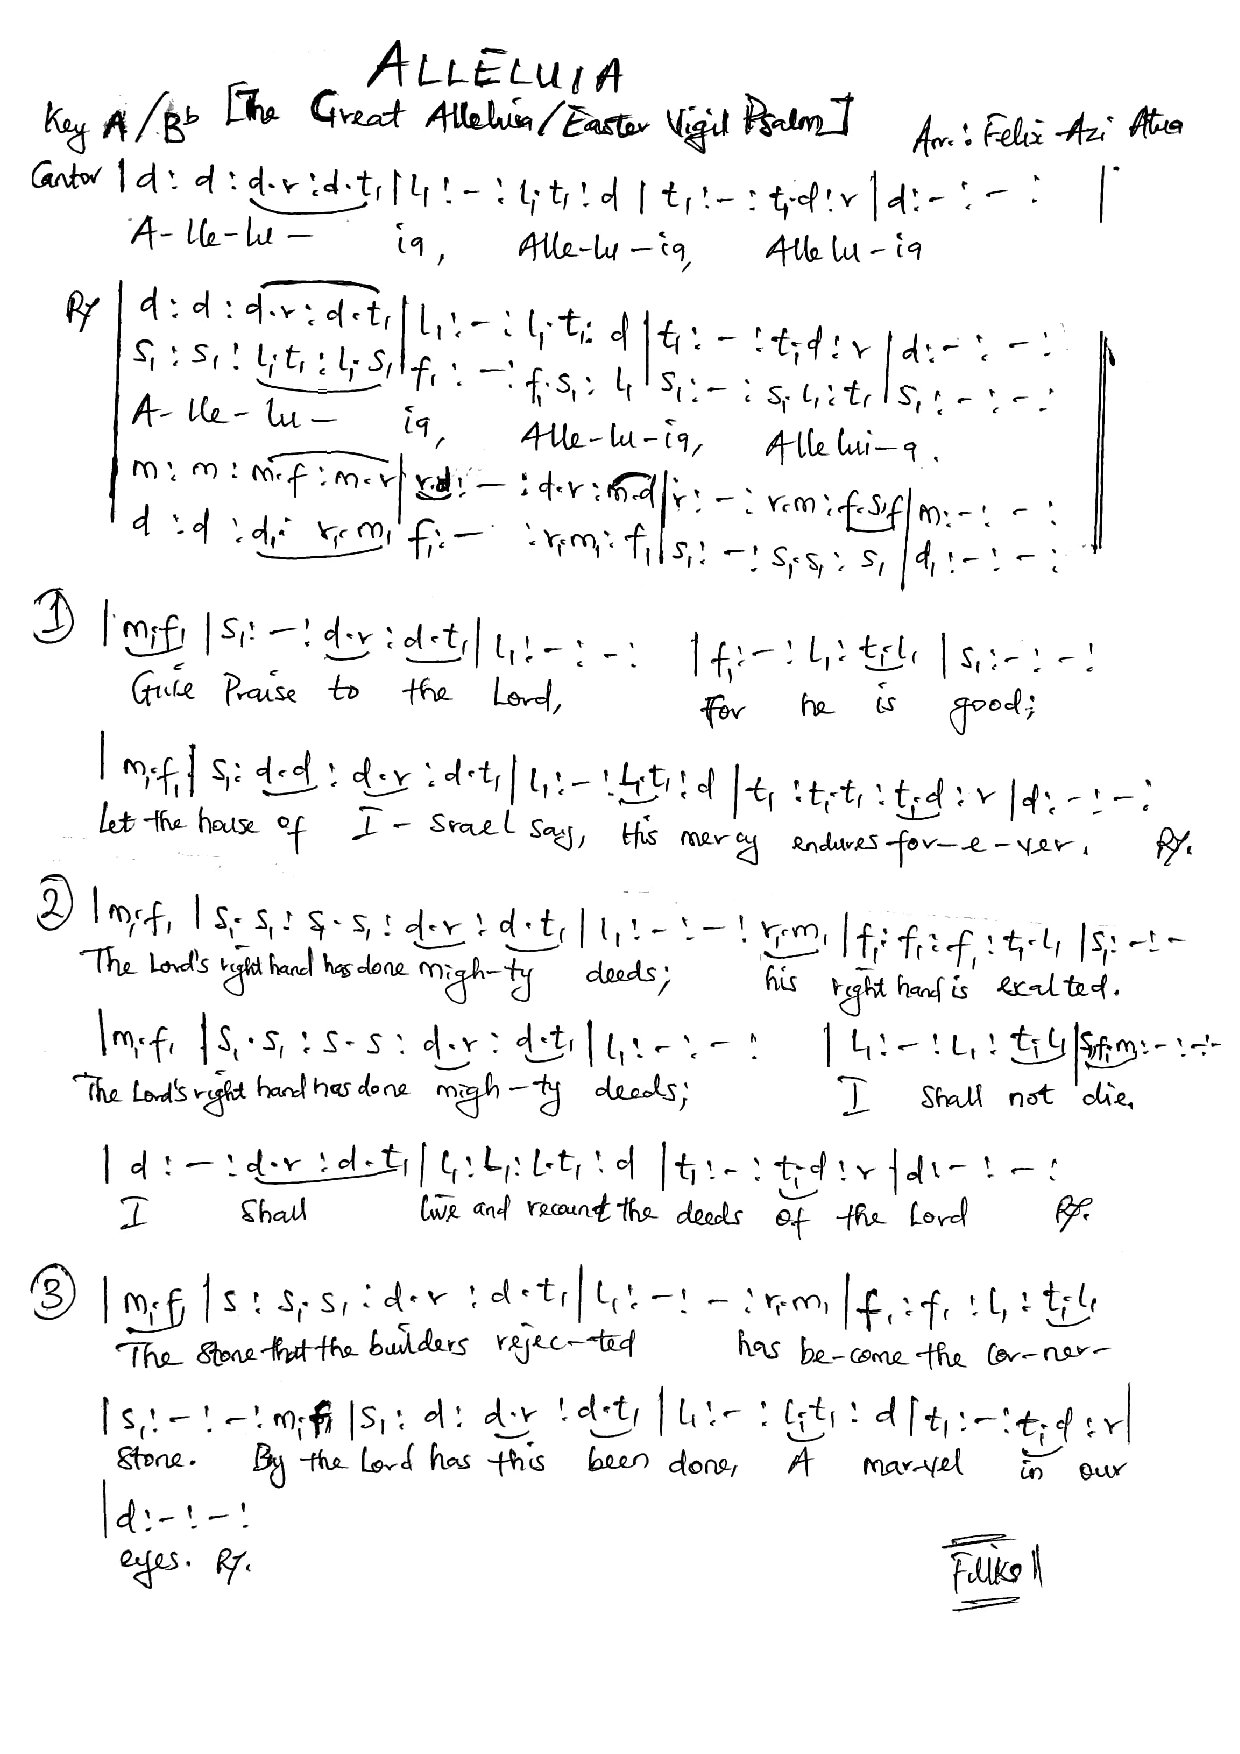 ALLELUIA
Key A/Bb [The Great Alleluia/Easter Vigil Psalm] Arr.: Felix Azi Atua
Cantor | d : d : d.r : d.t₁ | l₁ : - : l₁.t₁ : d | t₁ : - : t₁.d : r | d : - : - : |
A- lle-lu – ia, Alle-lu-ia, Allelu-ia
R/ | d : d : d.r : d.t₁ | l₁ : - : l₁.t₁ : d | t₁ : - : t₁.d : r | d : - : - : ||
s₁ : s₁ : l₁.t₁ : l₁.s₁ | f₁ : - : f₁.s₁ : l₁ | s₁ : - : s₁.l₁ : t₁ | s₁ : - : - :
A- lle- lu – ia, Alle-lu-ia, Allelui-a.
m : m : m.f : m.r | r.d : - : d.r : m.d | r : - : r.m : f.s.f | m : - : - :
d : d : d₁. r₁.m₁ | f₁ : - : r₁.m₁ : f₁ | s₁ : - : s₁.s₁ : s₁ | d₁ : - : - :
① | m₁.f₁ | s₁ : - : d.r : d.t₁ | l₁ : - : - : | f₁ : - : l₁ : t₁.l₁ | s₁ : - : - :
Give Praise to the Lord, for he is good;
| m₁.f₁ | s₁ : d.d : d.r : d.t₁ | l₁ : - : l₁.t₁ : d | t₁ : t₁.t₁ : t₁.d : r | d : - : - :
Let the house of I - srael say, His mercy endures for-e-ver. R/.
② | m₁.f₁ | s₁.s₁ : s₁.s₁ : d.r : d.t₁ | l₁ : - : - : r₁.m₁ | f₁ : f₁ : f₁ : t₁.l₁ | s₁ : - : -
The Lord's right hand has done migh-ty deeds; his right hand is exalted.
| m₁.f₁ | s₁.s₁ : s.s : d.r : d.t₁ | l₁ : - : - : | l₁ : - : l₁ : t₁.l₁ | s₁.f₁.m₁ : - : -
The Lord's right hand has done migh-ty deeds; I shall not die,
| d : - : d.r : d.t₁ | l₁ : l₁ : l.t₁ : d | t₁ : - : t₁.d : r | d : - : - :
I shall live and recount the deeds of the Lord R/.
③ | m₁.f₁ | s : s₁.s₁ : d.r : d.t₁ | l₁ : - : - : r₁.m₁ | f₁ : f₁ : l₁ : t₁.l₁
The stone that the builders rejec-ted has be-come the cor-ner-
| s₁ : - : - : m₁.f₁ | s₁ : d : d.r : d.t₁ | l₁ : - : l₁.t₁ : d | t₁ : - : t₁.d : r |
stone. By the Lord has this been done, A mar-vel in our
| d : - : - :
eyes. R/.